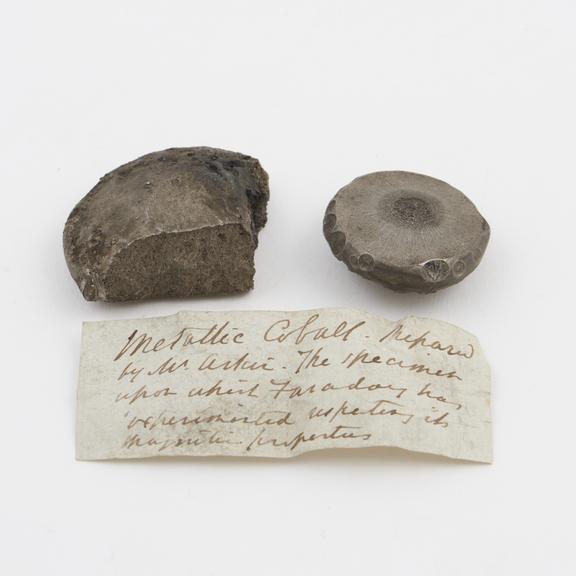 Metallic Cobalt. Prepared
by Mr Askin. The specimen
upon which Faraday has
experimented respecting its
magnetic properties